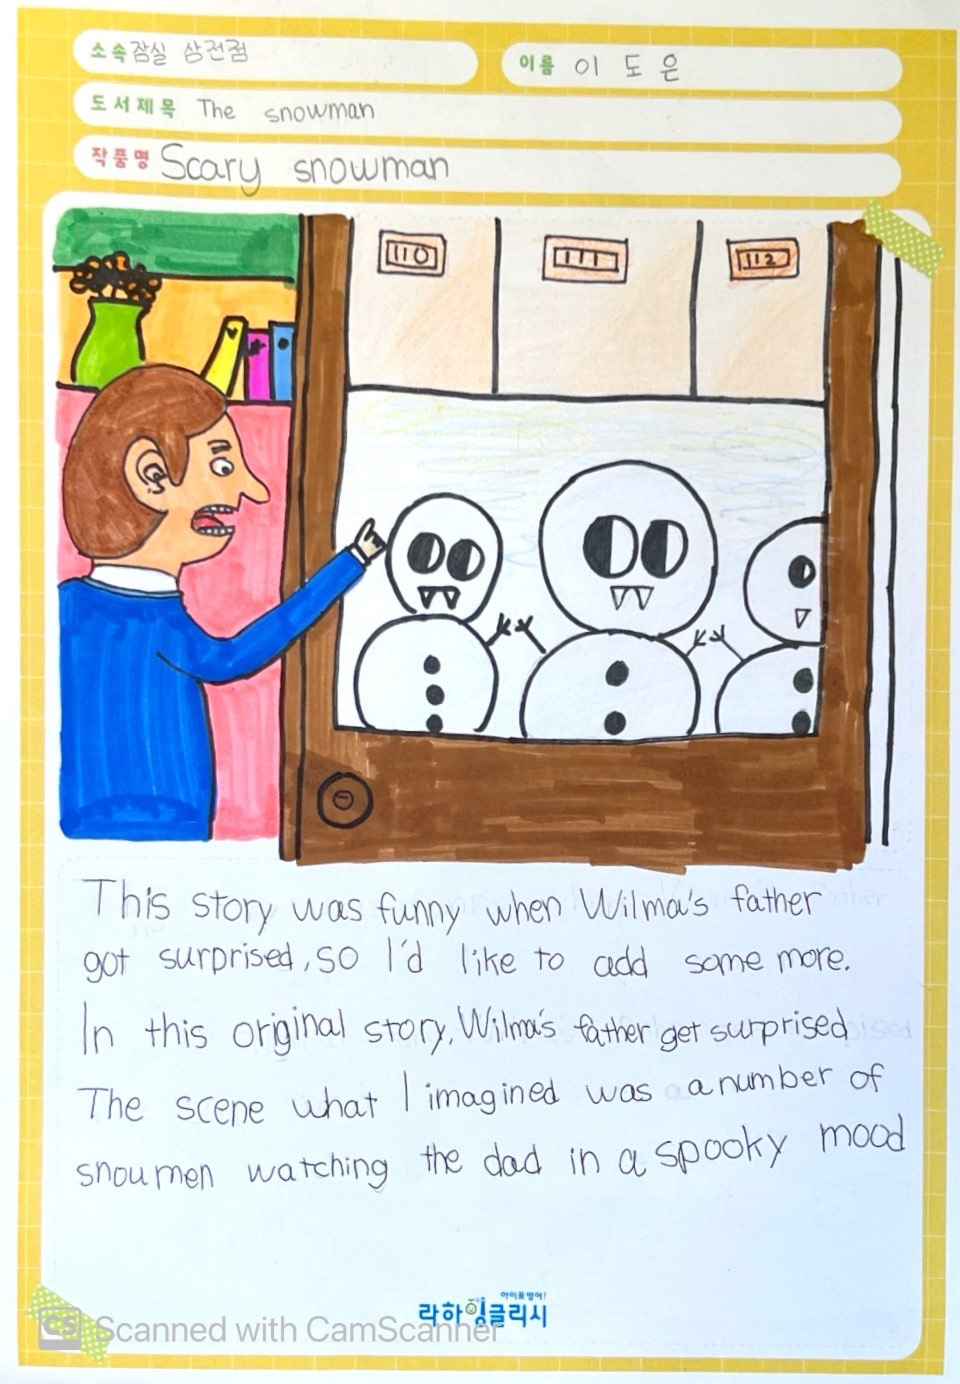 소속 잠실 삼전점
이름 이 도 은
도서제목 The snowman
작품명 Scary snowman
110
111
112
This story was funny when Wilma's father
got surprised, so I'd like to add some more.
In this original story, Wilma's father get surprised
The scene what I imagined was a number of
snoumen watching the dad in a spooky mood
아이표영어!
라하잉글리시
CS Scanned with CamScanner